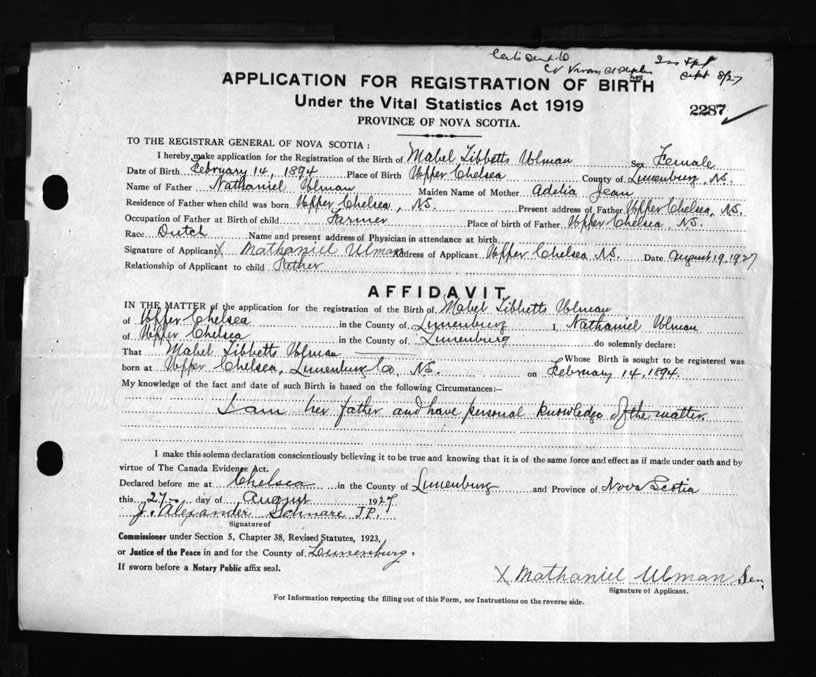 APPLICATION FOR REGISTRATION OF BIRTH
Under the Vital Statistics Act 1919
2287
PROVINCE OF NOVA SCOTIA.
TO THE REGISTRAR GENERAL OF NOVA SCOTIA :
I hereby make application for the Registration of the Birth of Mabel Tibbetts Ulman Sex Female
Date of Birth February 14, 1894 Place of Birth Upper Chelsea County of Lunenburg, N.S.
Name of Father Nathaniel Ulman Maiden Name of Mother Adelia Jean
Residence of Father when child was born Upper Chelsea, N.S. Present address of Father Upper Chelsea, N.S.
Occupation of Father at Birth of child Farmer Place of birth of Father Upper Chelsea, N.S.
Race Dutch Name and present address of Physician in attendance at birth
Signature of Applicant X Mathaniel Ulman Address of Applicant Upper Chelsea N.S. Date August 19, 1927
Relationship of Applicant to child Father
AFFIDAVIT
IN THE MATTER of the application for the registration of the Birth of Mabel Tibbetts Ulman
of Upper Chelsea in the County of Lunenburg I, Nathaniel Ulman
of Upper Chelsea in the County of Lunenburg do solemnly declare:
That Mabel Tibbetts Ulman Whose Birth is sought to be registered was
born at Upper Chelsea, Lunenburg Co, N.S. on February 14, 1894.
My knowledge of the fact and date of such Birth is based on the following Circumstances:—
I am her father and have personal knowledge of the matter.
I make this solemn declaration conscientiously believing it to be true and knowing that it is of the same force and effect as if made under oath and by
virtue of The Canada Evidence Act.
Declared before me at Chelsea in the County of Lunenburg and Province of Nova Scotia
this 27 day of August 1927
J. Alexander Schnare J.P.
Signature of
Commissioner under Section 5, Chapter 38, Revised Statutes, 1923,
or Justice of the Peace in and for the County of Lunenburg.
If sworn before a Notary Public affix seal.
X Mathaniel Ulman Sen,
Signature of Applicant.
For Information respecting the filling out of this Form, see Instructions on the reverse side.